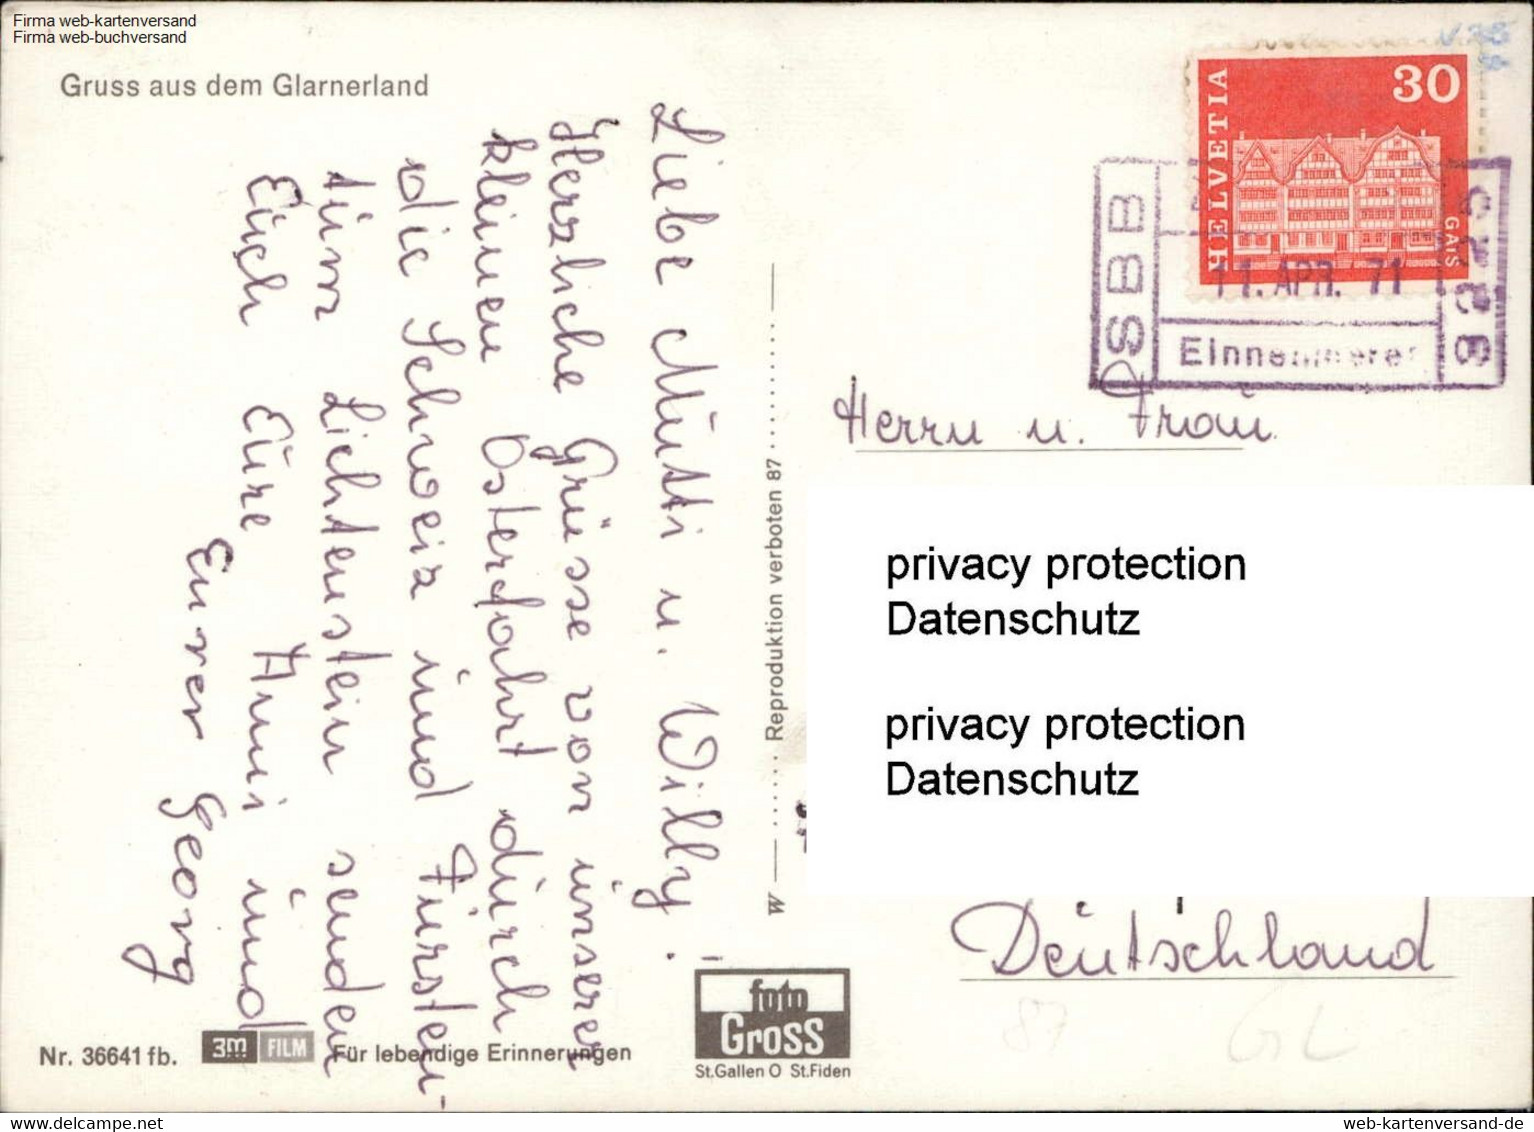 Firma web-kartenversand
Firma web-buchversand
Gruss aus dem Glarnerland
Liebe Mutti u. Willy.
Herzliche Grüsse von unserer
kleinen Osterfahrt durch
die Schweiz und Fürsten-
tum Lichtenstein senden
Euch Eure Anni und
Eurer Georg
Nr. 36641 fb.
3m FILM
Für lebendige Erinnerungen
W
Reproduktion verboten 87
foto
Gross
St.Gallen O St.Fiden
HELVETIA
30
GAIS
SBB
11. APR. 71
Herrn u. Frau
privacy protection
Datenschutz
privacy protection
Datenschutz
Deutschland
87
GL
delcampe.net
web-kartenversand-de